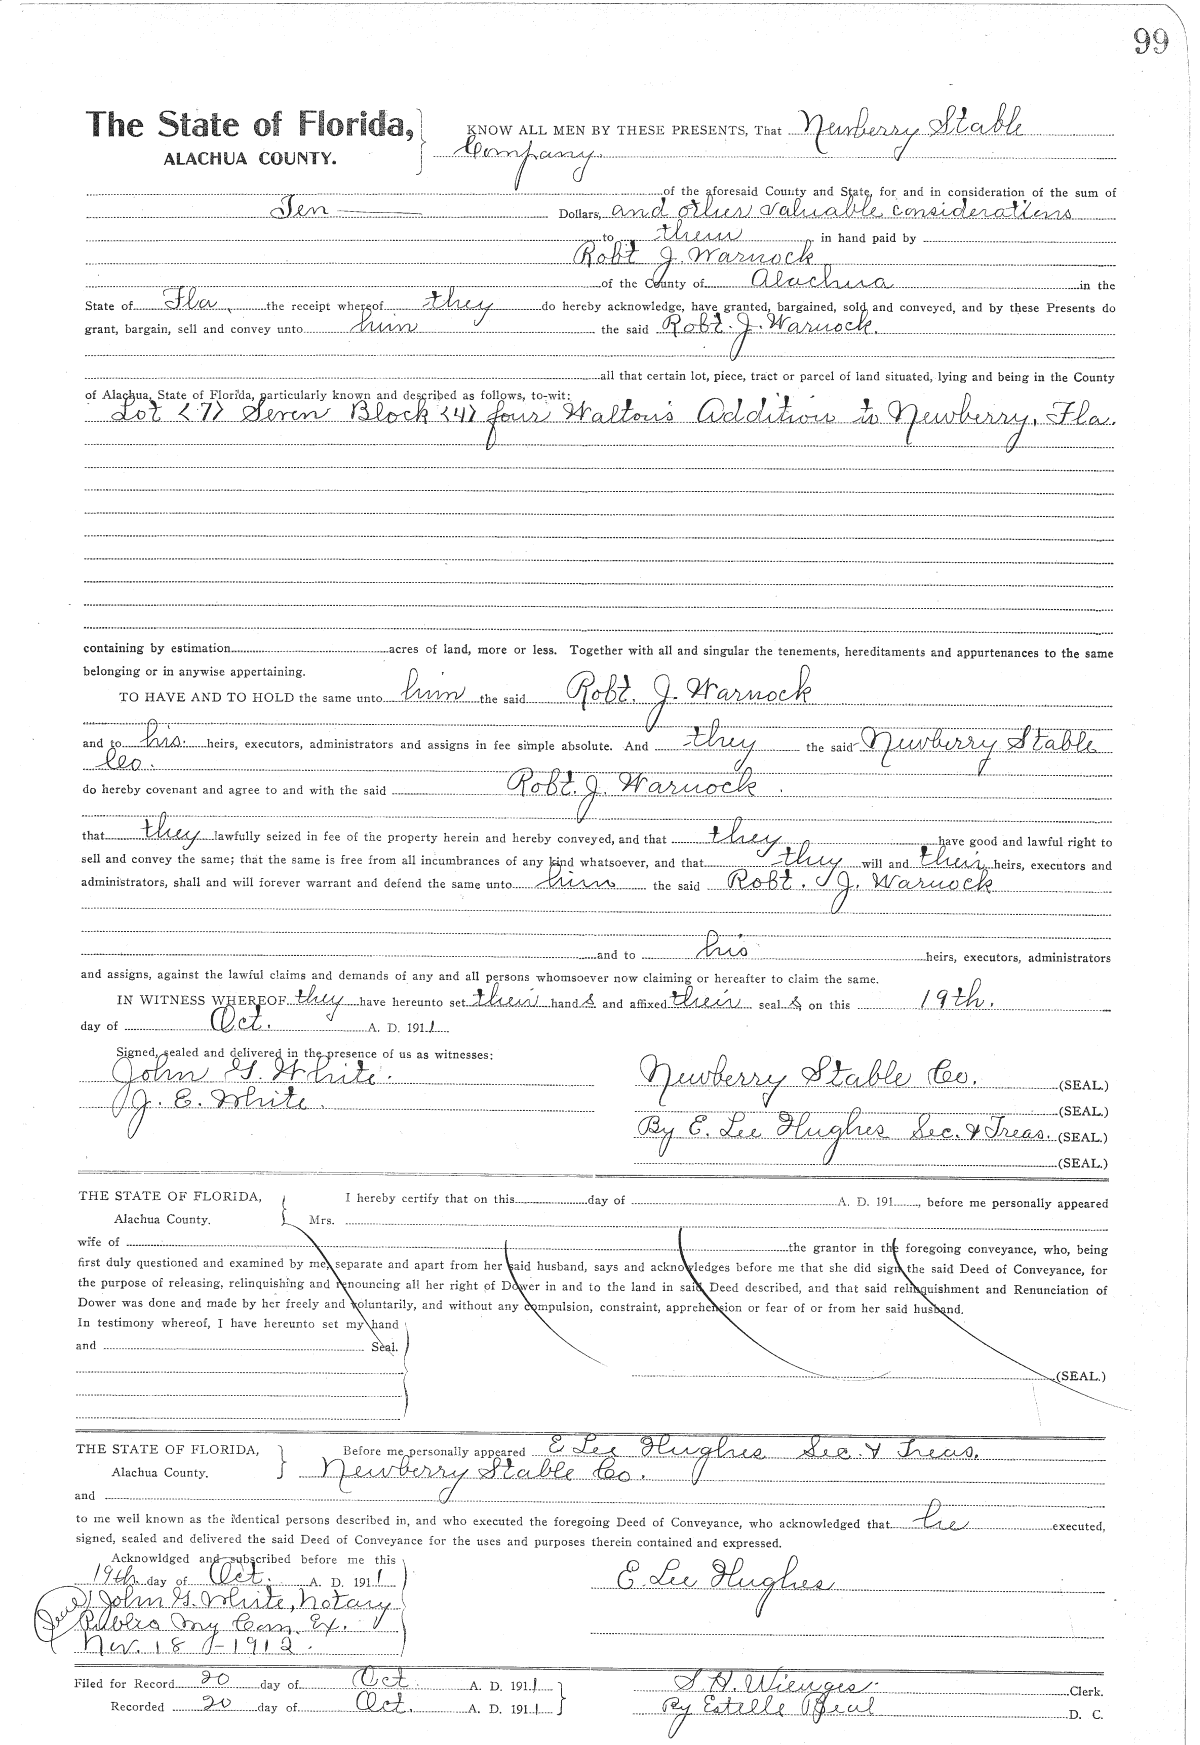 99
The State of Florida,
ALACHUA COUNTY.
KNOW ALL MEN BY THESE PRESENTS, That Newberry Stable
Company.
of the aforesaid County and State, for and in consideration of the sum of
Ten Dollars, and other valuable considerations
to them in hand paid by
Robt J. Warnock
of the County of Alachua in the
State of Fla, the receipt whereof they do hereby acknowledge, have granted, bargained, sold and conveyed, and by these Presents do
grant, bargain, sell and convey unto him the said Robt. J. Warnock.
all that certain lot, piece, tract or parcel of land situated, lying and being in the County
of Alachua, State of Florida, particularly known and described as follows, to-wit:
Lot <7> Seven Block <4> four Walton's Addition to Newberry, Fla.
containing by estimation acres of land, more or less. Together with all and singular the tenements, hereditaments and appurtenances to the same
belonging or in anywise appertaining.
TO HAVE AND TO HOLD the same unto him the said Robt. J. Warnock
and to his heirs, executors, administrators and assigns in fee simple absolute. And they the said Newberry Stable
Co.
do hereby covenant and agree to and with the said Robt. J. Warnock.
that they lawfully seized in fee of the property herein and hereby conveyed, and that they have good and lawful right to
sell and convey the same; that the same is free from all incumbrances of any kind whatsoever, and that they will and their heirs, executors and
administrators, shall and will forever warrant and defend the same unto him the said Robt. J. Warnock
and to his heirs, executors, administrators
and assigns, against the lawful claims and demands of any and all persons whomsoever now claiming or hereafter to claim the same.
IN WITNESS WHEREOF they have hereunto set their hands and affixed their seals on this 19th.
day of Oct. A. D. 1911
Signed, sealed and delivered in the presence of us as witnesses:
John G. White.
J. E. White.
Newberry Stable Co. (SEAL.)
(SEAL.)
By E. Lee Hughes Sec. & Treas. (SEAL.)
(SEAL.)
THE STATE OF FLORIDA,
Alachua County.
I hereby certify that on this day of A. D. 191 , before me personally appeared
Mrs.
wife of the grantor in the foregoing conveyance, who, being
first duly questioned and examined by me, separate and apart from her said husband, says and acknowledges before me that she did sign the said Deed of Conveyance, for
the purpose of releasing, relinquishing and renouncing all her right of Dower in and to the land in said Deed described, and that said relinquishment and Renunciation of
Dower was done and made by her freely and voluntarily, and without any compulsion, constraint, apprehension or fear of or from her said husband.
In testimony whereof, I have hereunto set my hand
and Seal.
(SEAL.)
THE STATE OF FLORIDA,
Alachua County.
Before me personally appeared E Lee Hughes Sec. & Treas.
Newberry Stable Co.
and
to me well known as the identical persons described in, and who executed the foregoing Deed of Conveyance, who acknowledged that he executed,
signed, sealed and delivered the said Deed of Conveyance for the uses and purposes therein contained and expressed.
Acknowldged and subscribed before me this
19th day of Oct. A. D. 1911
John G. White, Notary
Public My Com. Ex.
Nov. 18 - 1912.
E. Lee Hughes
Filed for Record 20 day of Oct A. D. 1911
Recorded 20 day of Oct. A. D. 1911
S. H. Wienges. Clerk.
By Estelle Beal D. C.